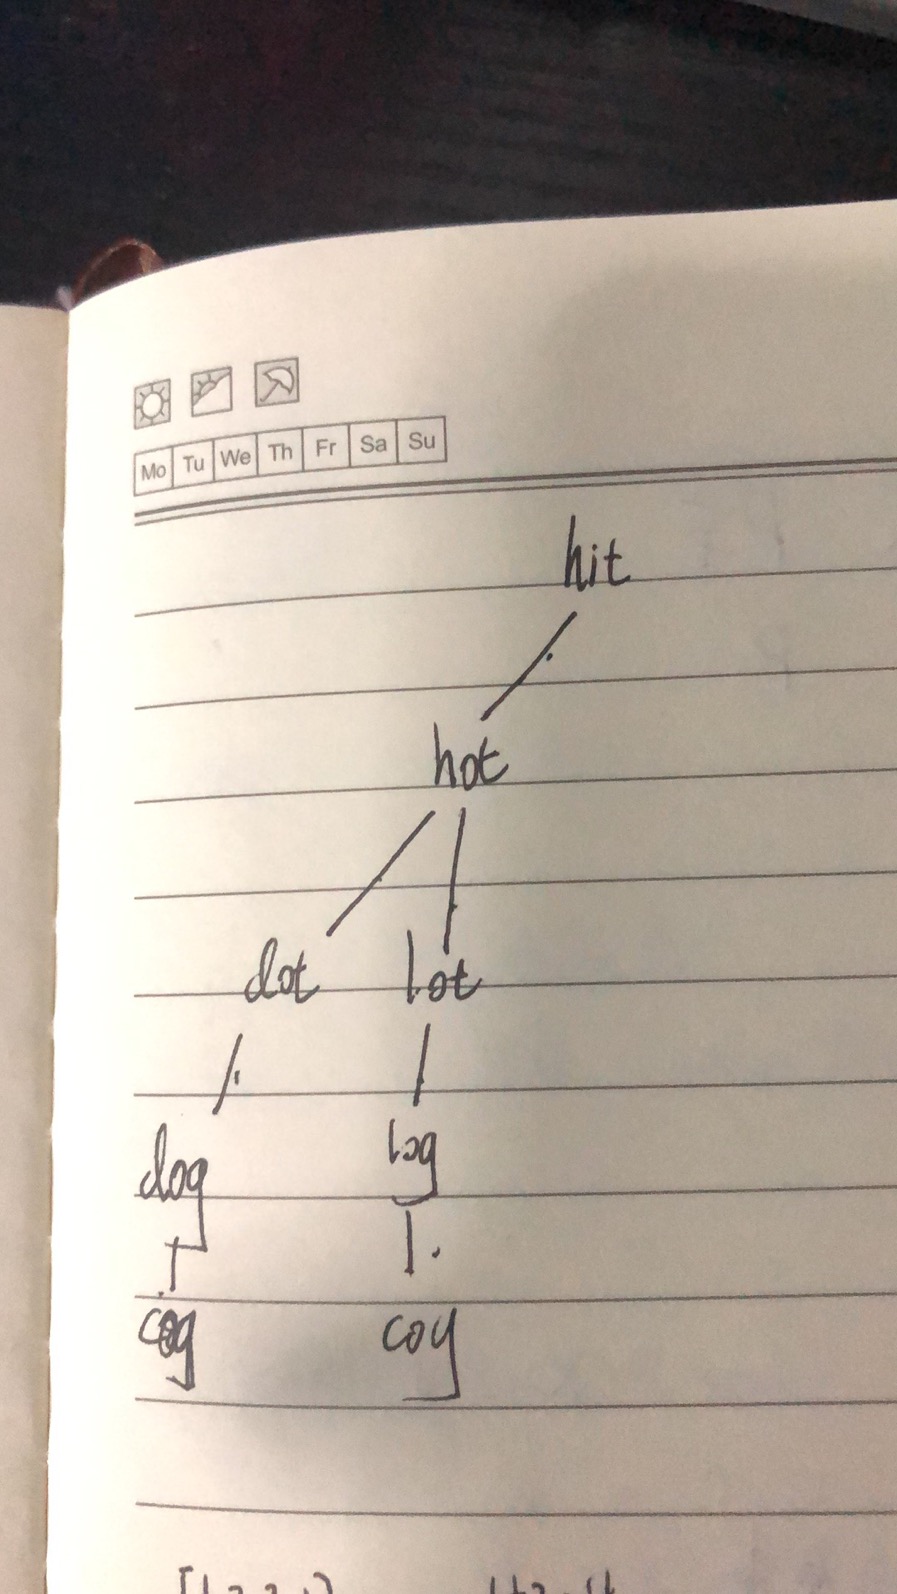 Mo Tu We Th Fr Sa Su
hit
hot
dot lot
dog log
cog coy